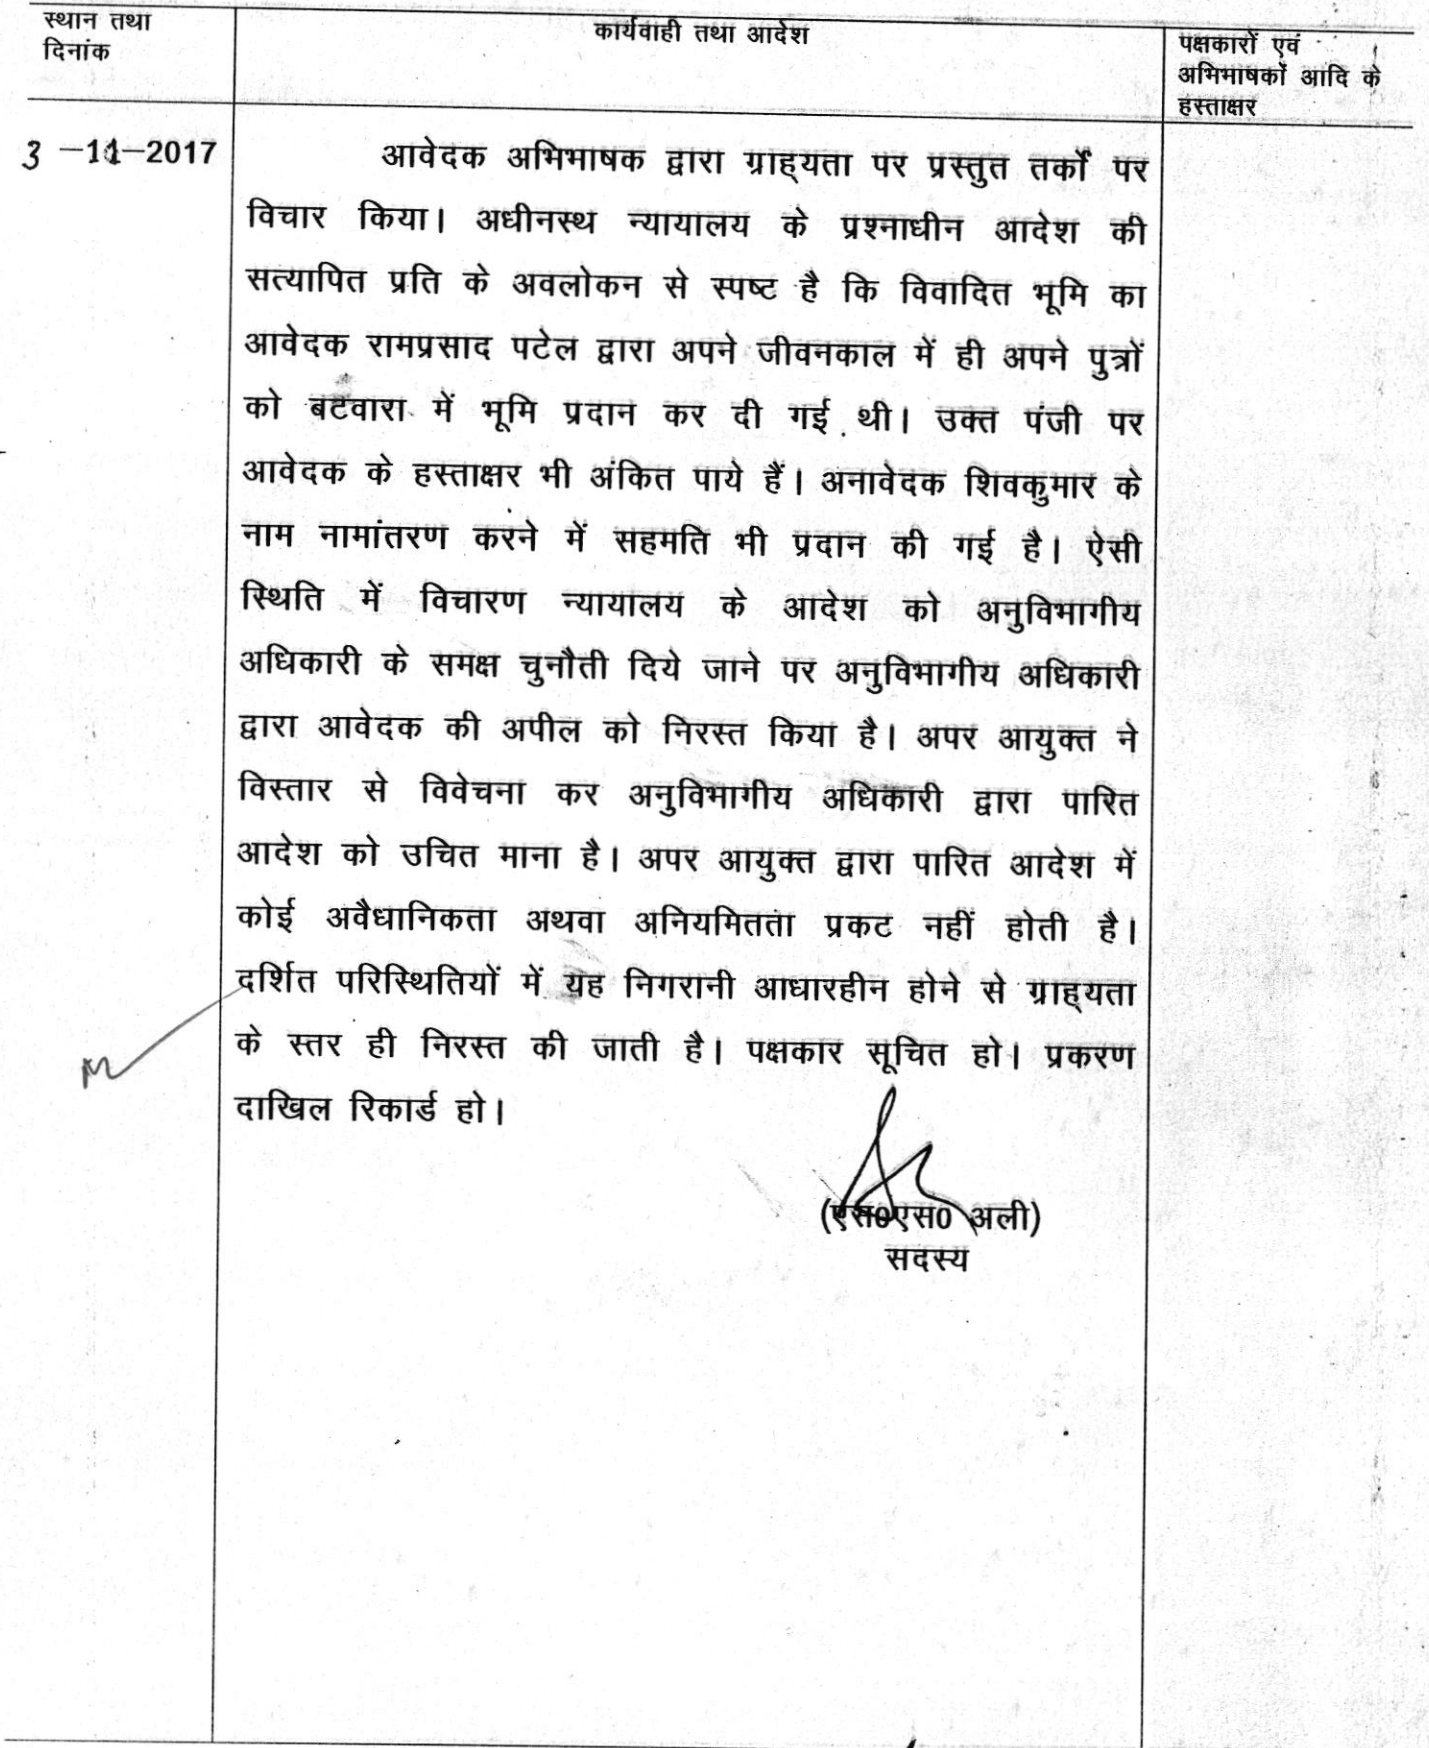 स्थान तथा
दिनांक
कार्यवाही तथा आदेश
पक्षकारों एवं
अभिभाषकों आदि के
हस्ताक्षर
3 -11-2017
आवेदक अभिभाषक द्वारा ग्राह्यता पर प्रस्तुत तर्कों पर
विचार किया। अधीनस्थ न्यायालय के प्रश्नाधीन आदेश की
सत्यापित प्रति के अवलोकन से स्पष्ट है कि विवादित भूमि का
आवेदक रामप्रसाद पटेल द्वारा अपने जीवनकाल में ही अपने पुत्रों
को बटवारा में भूमि प्रदान कर दी गई थी। उक्त पंजी पर
आवेदक के हस्ताक्षर भी अंकित पाये हैं। अनावेदक शिवकुमार के
नाम नामांतरण करने में सहमति भी प्रदान की गई है। ऐसी
स्थिति में विचारण न्यायालय के आदेश को अनुविभागीय
अधिकारी के समक्ष चुनौती दिये जाने पर अनुविभागीय अधिकारी
द्वारा आवेदक की अपील को निरस्त किया है। अपर आयुक्त ने
विस्तार से विवेचना कर अनुविभागीय अधिकारी द्वारा पारित
आदेश को उचित माना है। अपर आयुक्त द्वारा पारित आदेश में
कोई अवैधानिकता अथवा अनियमितता प्रकट नहीं होती है।
दर्शित परिस्थितियों में यह निगरानी आधारहीन होने से ग्राह्यता
के स्तर ही निरस्त की जाती है। पक्षकार सूचित हो। प्रकरण
दाखिल रिकार्ड हो।
(एस0एस0 अली)
सदस्य